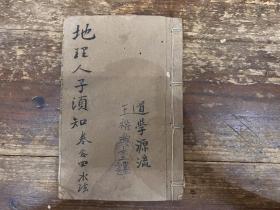 地理人子须知 卷之四 水法
道学源流
王